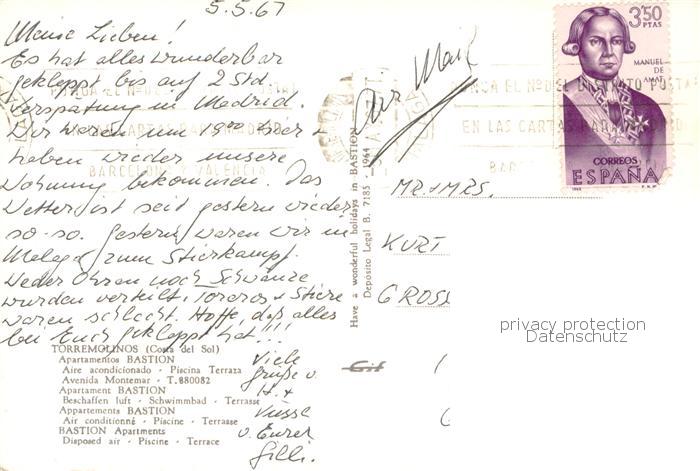 5.5.67
Meine Lieben!
Es hat alles wunderbar
geklappt bis auf 2 Std.
Verspätung in Madrid.
Wir waren um 19⁰⁰ hier +
haben wieder unsere
Wohnung bekommen. Das
Wetter ist seit gestern wieder
so-so. Gestern waren wir in
Malaga zum Stierkampf.
Weder Ohren noch Schwänze
wurden verteilt, Toreros + Stiere
waren schlecht. Hoffe, daß alles
bei Euch geklappt hat!!!
Viele
Grüße u.
Küsse
v. Eurer
Gilli.
TORREMOLINOS (Costa del Sol)
Apartamentos BASTION
Aire acondicionado - Piscina Terraza
Avenida Montemar - T. 880082
Apartament BASTION
Beschaffen luft - Schwimmbad - Terrasse
Appartements BASTION
Air conditionné - Piscine - Terrasse
BASTION Apartments
Disposed air - Piscine - Terrace
Have a wonderful holidays in BASTION
Depósito Legal B. 7185 - 1964
Air Mail
3'50
PTAS
MANUEL
DE
AMAT
CORREOS
ESPAÑA
PONGA EL Nº DEL DISTRITO POSTAL
EN LAS CARTAS PARA MADRID
BARCELONA Y VALENCIA
MR.+MRS.
KURT
GROSS
privacy protection
Datenschutz